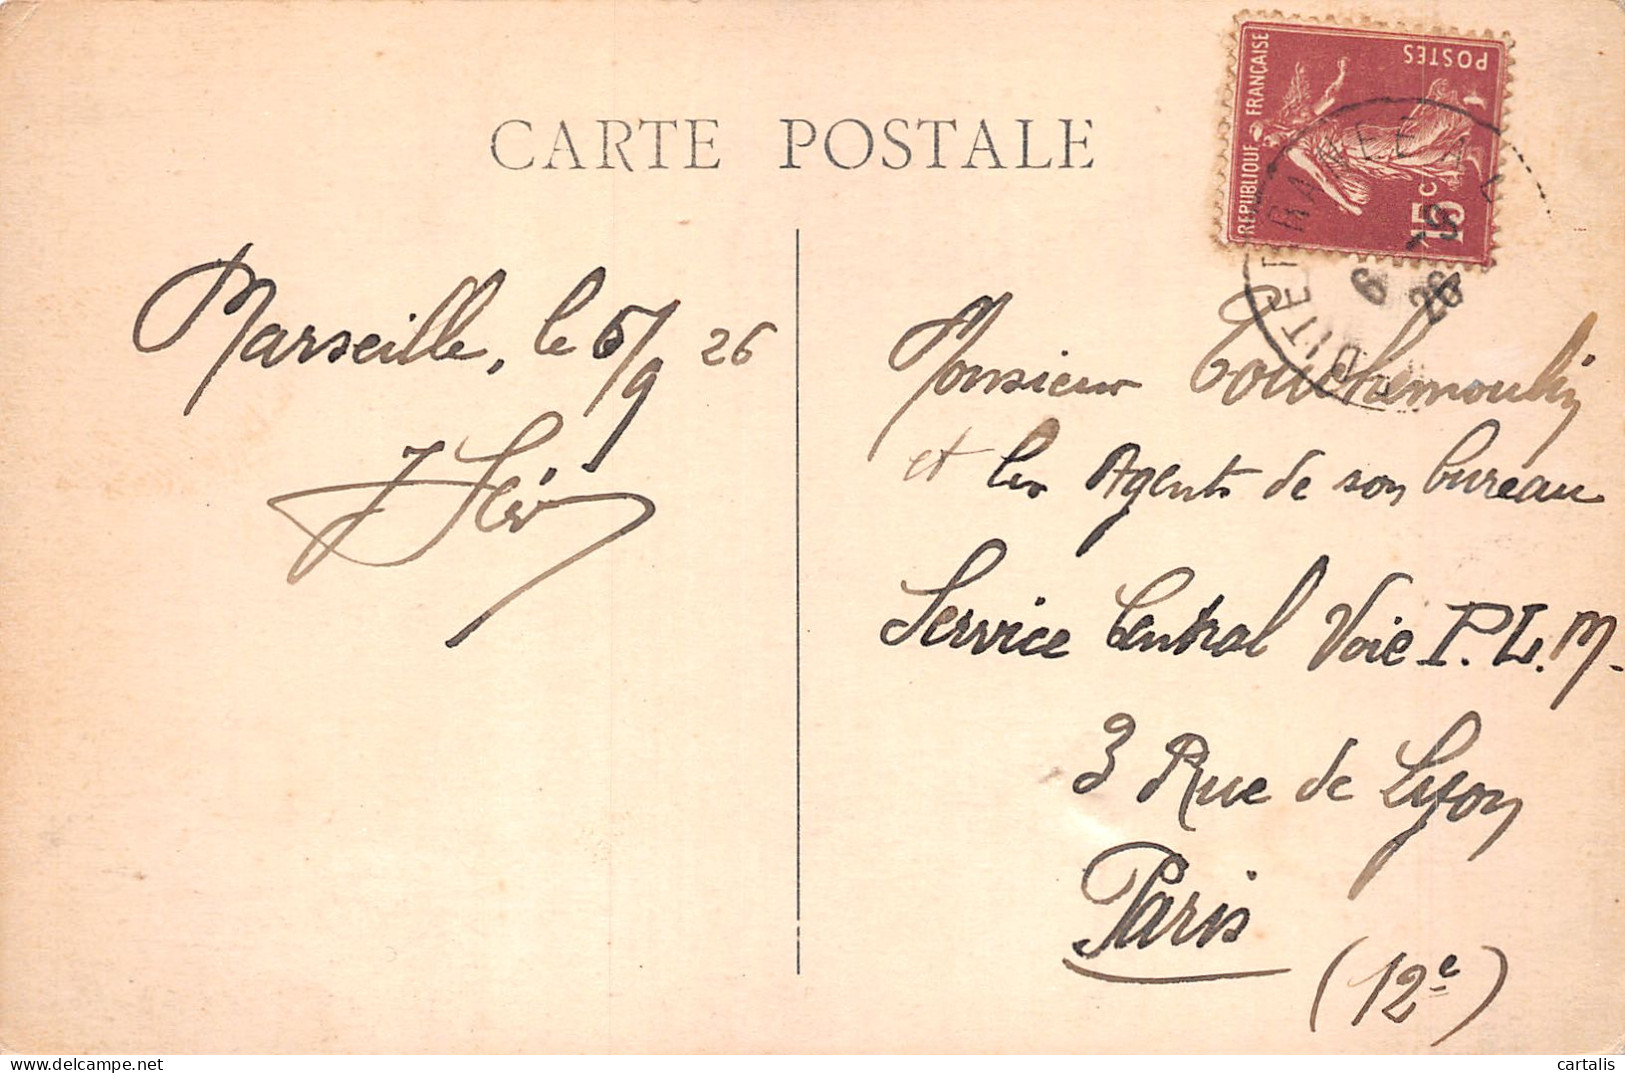 CARTE POSTALE
REPUBLIQUE FRANÇAISE
POSTES
15 C
DITERRANEE A
6 - 9
26
Marseille, le 6/9 26
Monsieur Touchemoulin
et les Agents de son bureau
Service Central Voie P.L.M.
3 Rue de Lyon
Paris
(12e)
cartalis